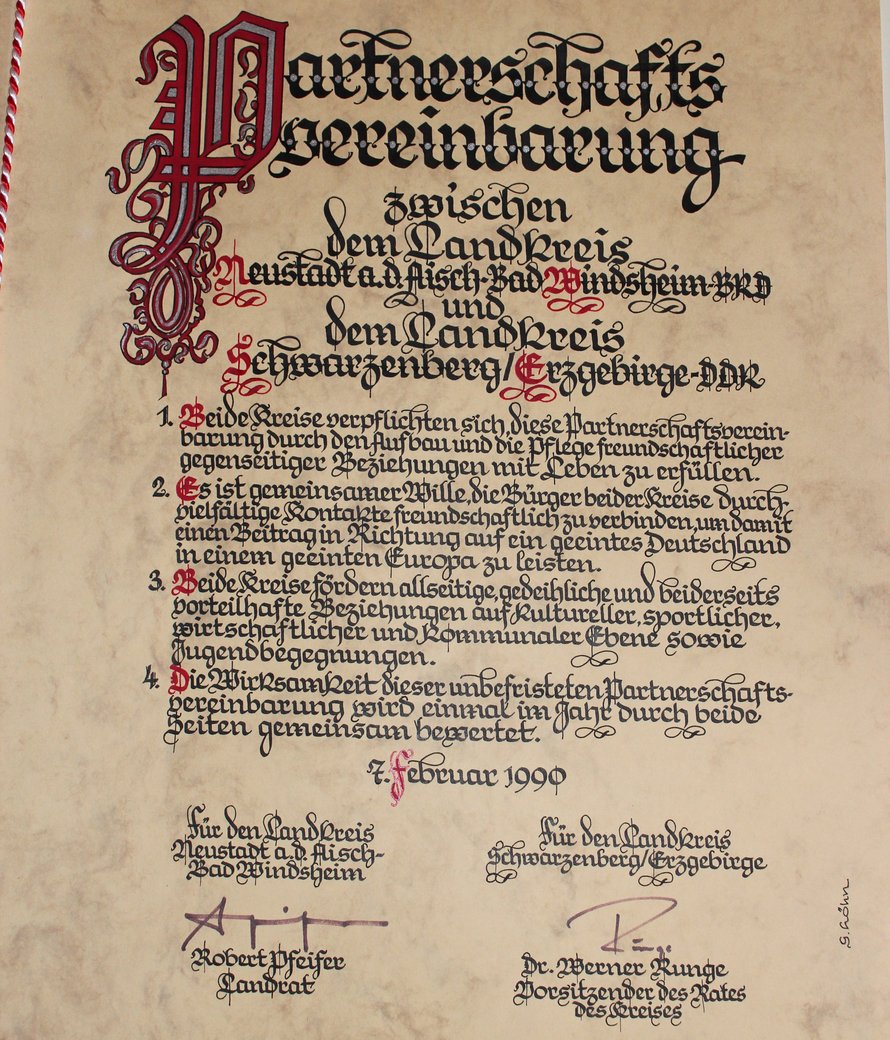 Partnerschafts
vereinbarung
zwischen
dem Landkreis
Neustadt a.d. Aisch-Bad Windsheim-BRD
und
dem Landkreis
Schwarzenberg/Erzgebirge-DDR
1. Beide Kreise verpflichten sich, diese Partnerschaftsverein-
barung durch den Aufbau und die Pflege freundschaftlicher
gegenseitiger Beziehungen mit Leben zu erfüllen.
2. Es ist gemeinsamer Wille, die Bürger beider Kreise durch
vielfältige Kontakte freundschaftlich zu verbinden, um damit
einen Beitrag in Richtung auf ein geeintes Deutschland
in einem geeinten Europa zu leisten.
3. Beide Kreise fördern allseitige, gedeihliche und beiderseits
vorteilhafte Beziehungen auf kultureller, sportlicher,
wirtschaftlicher und kommunaler Ebene sowie
Jugendbegegnungen.
4. Die Wirksamkeit dieser unbefristeten Partnerschafts-
vereinbarung wird einmal im Jahr durch beide
Seiten gemeinsam bewertet.
7. Februar 1990
Für den Landkreis
Neustadt a.d. Aisch-
Bad Windsheim
Robert Pfeifer
Landrat
Für den Landkreis
Schwarzenberg/Erzgebirge
Dr. Werner Runge
Vorsitzender des Rates
des Kreises
G. Löhn